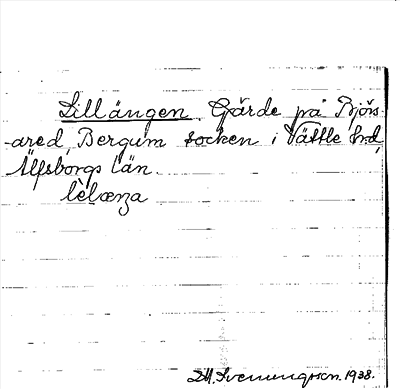 Lillängen. Gärde på Björs-
ared, Bergum socken i Vättle hrd,
Älfsborgs län.
lèlæŋa
Svenungsson. 1938.